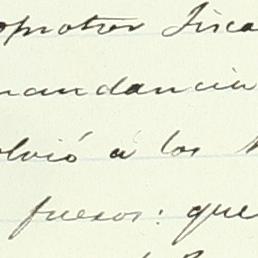 opotror Fisca
mandancia
olvió á los
fuesos: que